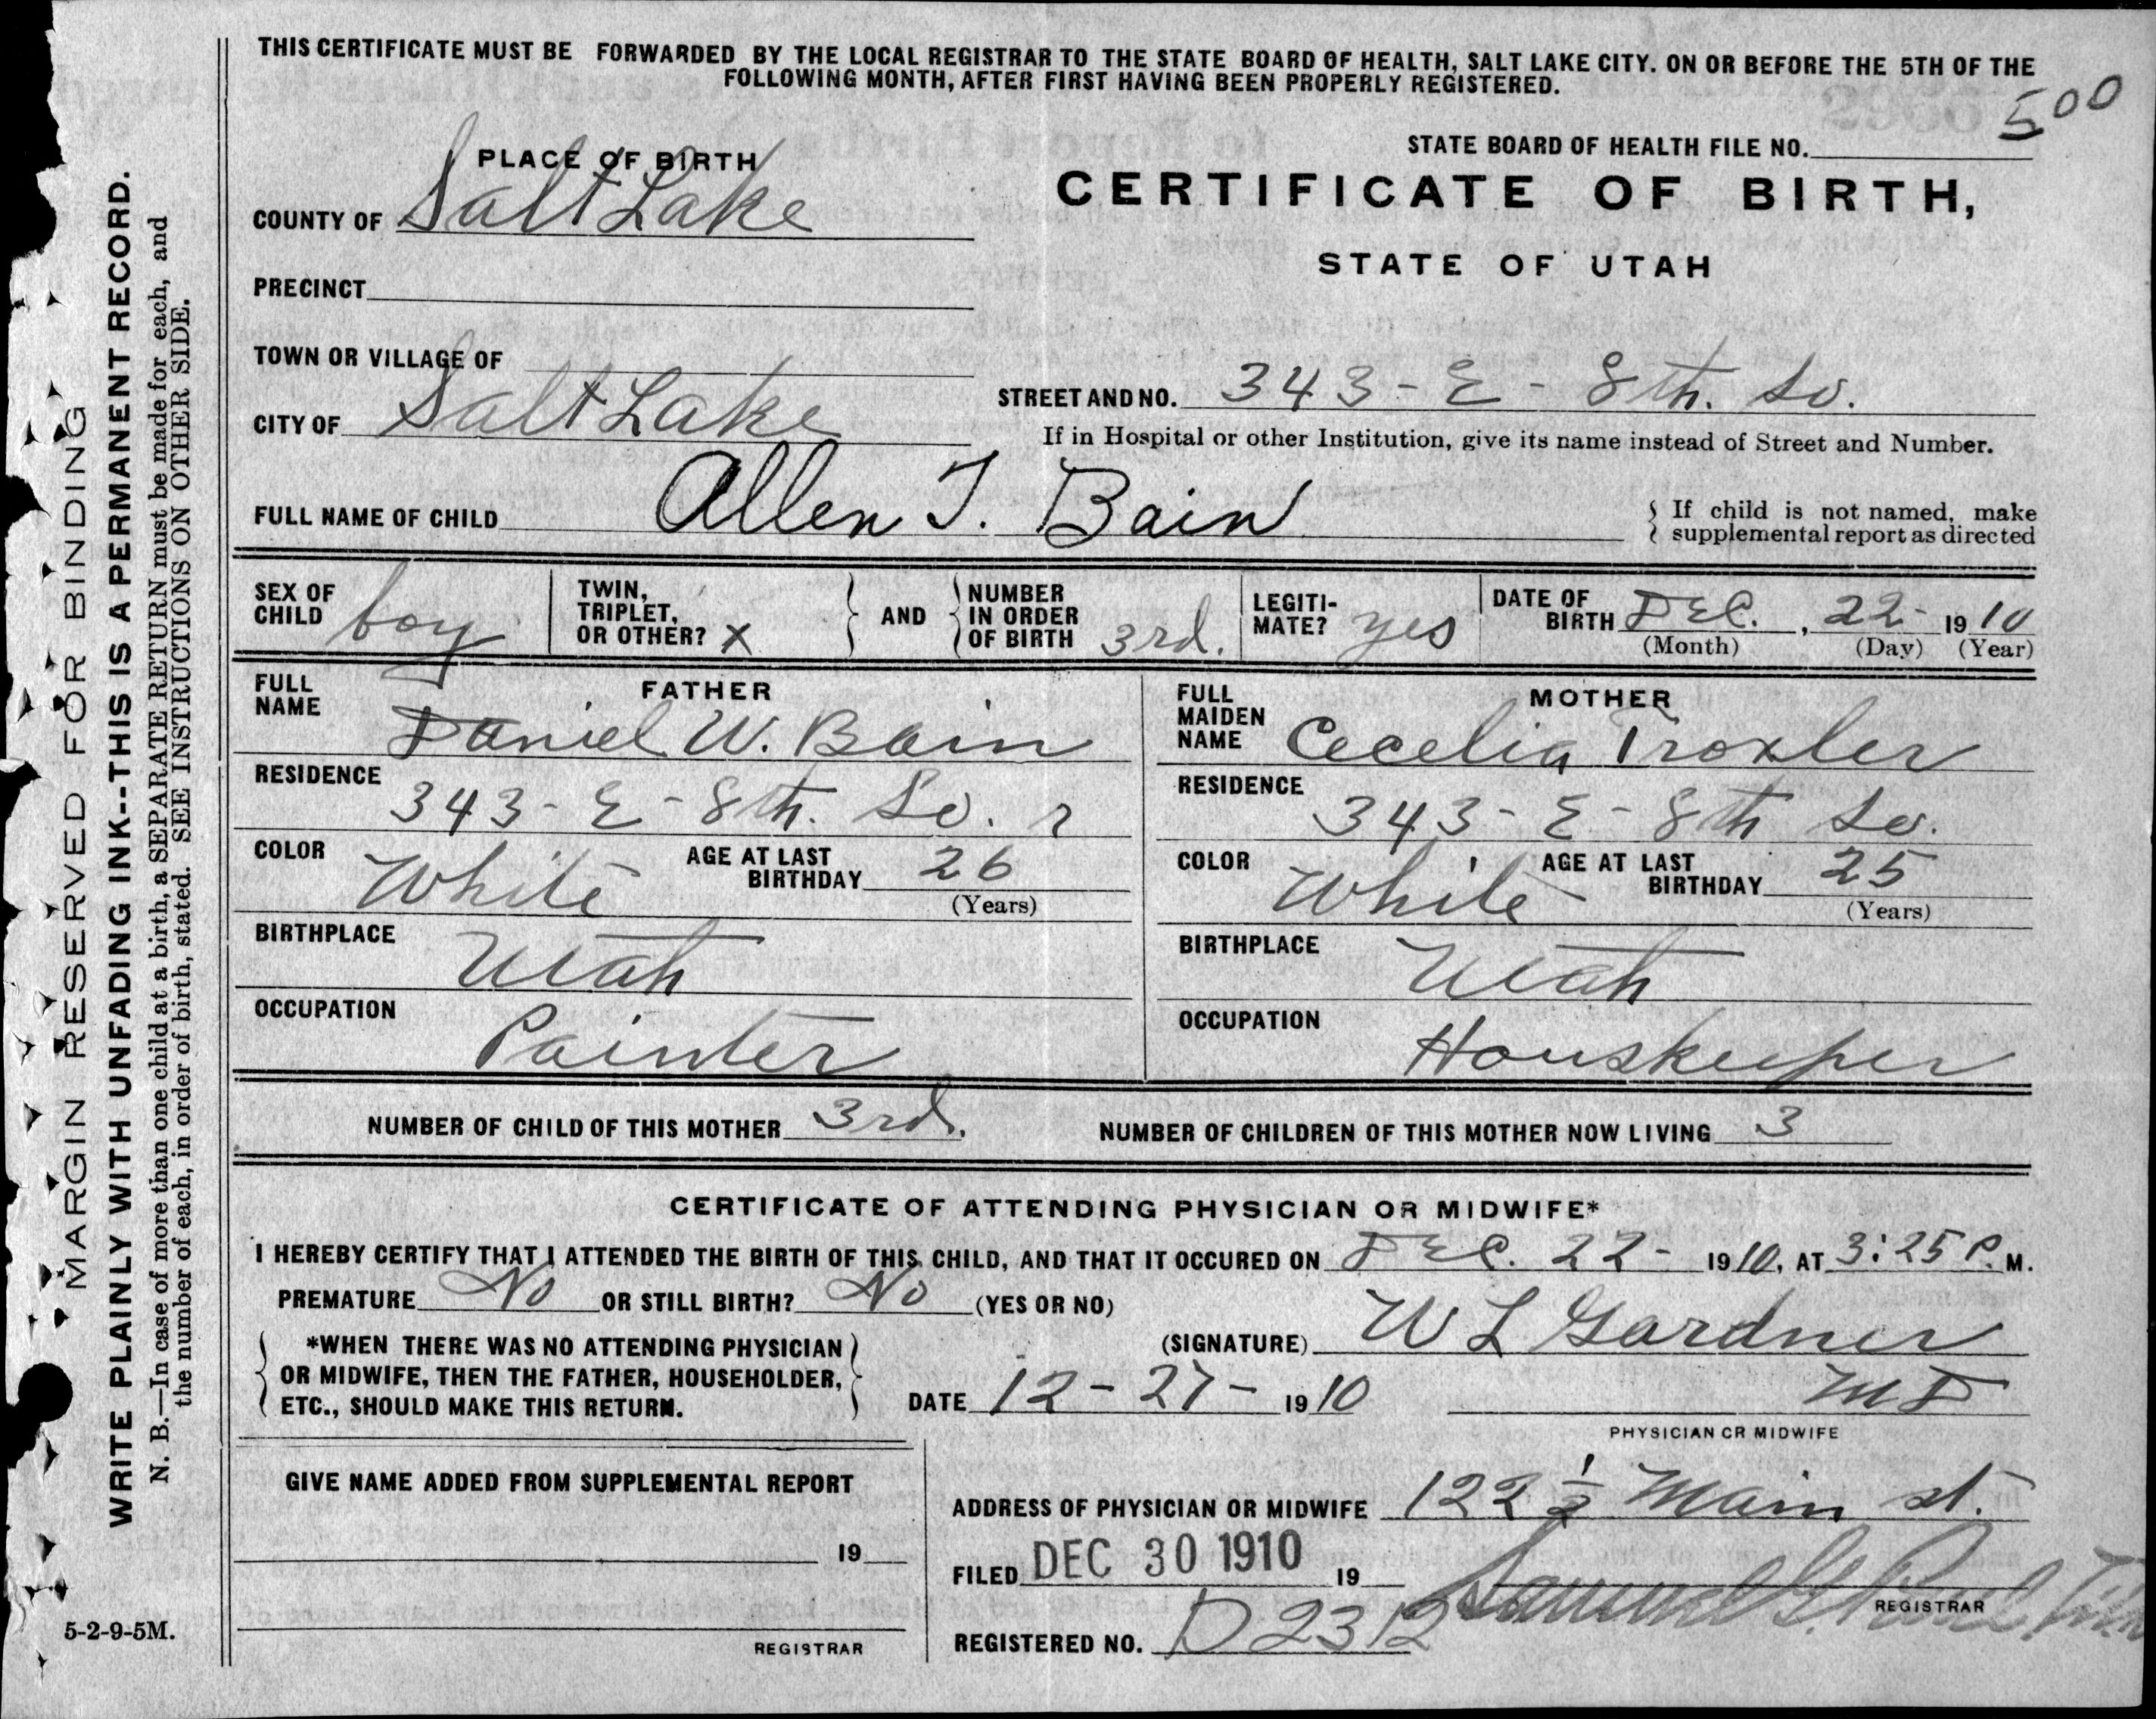 THIS CERTIFICATE MUST BE FORWARDED BY THE LOCAL REGISTRAR TO THE STATE BOARD OF HEALTH, SALT LAKE CITY. ON OR BEFORE THE 5TH OF THE
FOLLOWING MONTH, AFTER FIRST HAVING BEEN PROPERLY REGISTERED.
STATE BOARD OF HEALTH FILE NO. 500
PLACE OF BIRTH
CERTIFICATE OF BIRTH,
STATE OF UTAH
COUNTY OF Salt Lake
PRECINCT
TOWN OR VILLAGE OF
CITY OF Salt Lake
STREET AND NO. 343 - E - 8th. So.
If in Hospital or other Institution, give its name instead of Street and Number.
FULL NAME OF CHILD Allen T. Bain
If child is not named, make
supplemental report as directed
SEX OF CHILD boy
TWIN, TRIPLET, OR OTHER? X
AND
NUMBER IN ORDER OF BIRTH 3rd.
LEGITI-MATE? yes
DATE OF BIRTH DEC., 22- 1910
(Month) (Day) (Year)
FATHER
FULL NAME Daniel W. Bain
RESIDENCE 343- E - 8th. So.
COLOR White
AGE AT LAST BIRTHDAY 26
(Years)
BIRTHPLACE Utah
OCCUPATION Painter
MOTHER
FULL MAIDEN NAME Cecelia Troxler
RESIDENCE 343- E - 8th So.
COLOR White
AGE AT LAST BIRTHDAY 25
(Years)
BIRTHPLACE Utah
OCCUPATION Houskeeper
NUMBER OF CHILD OF THIS MOTHER 3rd.
NUMBER OF CHILDREN OF THIS MOTHER NOW LIVING 3
CERTIFICATE OF ATTENDING PHYSICIAN OR MIDWIFE*
I HEREBY CERTIFY THAT I ATTENDED THE BIRTH OF THIS CHILD, AND THAT IT OCCURED ON DEC. 22- 1910, AT 3:25 P. M.
PREMATURE No OR STILL BIRTH? No (YES OR NO)
*WHEN THERE WAS NO ATTENDING PHYSICIAN
OR MIDWIFE, THEN THE FATHER, HOUSEHOLDER,
ETC., SHOULD MAKE THIS RETURN.
(SIGNATURE) W L Gardner
DATE 12-27- 1910
MD
PHYSICIAN OR MIDWIFE
GIVE NAME ADDED FROM SUPPLEMENTAL REPORT
19
REGISTRAR
ADDRESS OF PHYSICIAN OR MIDWIFE 122 1/2 Main st.
FILED DEC 30 1910 19
Samuel G. Paul
REGISTRAR
REGISTERED NO. D2312
MARGIN RESERVED FOR BINDING
WRITE PLAINLY WITH UNFADING INK--THIS IS A PERMANENT RECORD.
N. B.—In case of more than one child at a birth, a SEPARATE RETURN must be made for each, and
the number of each, in order of birth, stated. SEE INSTRUCTIONS ON OTHER SIDE.
5-2-9-5M.